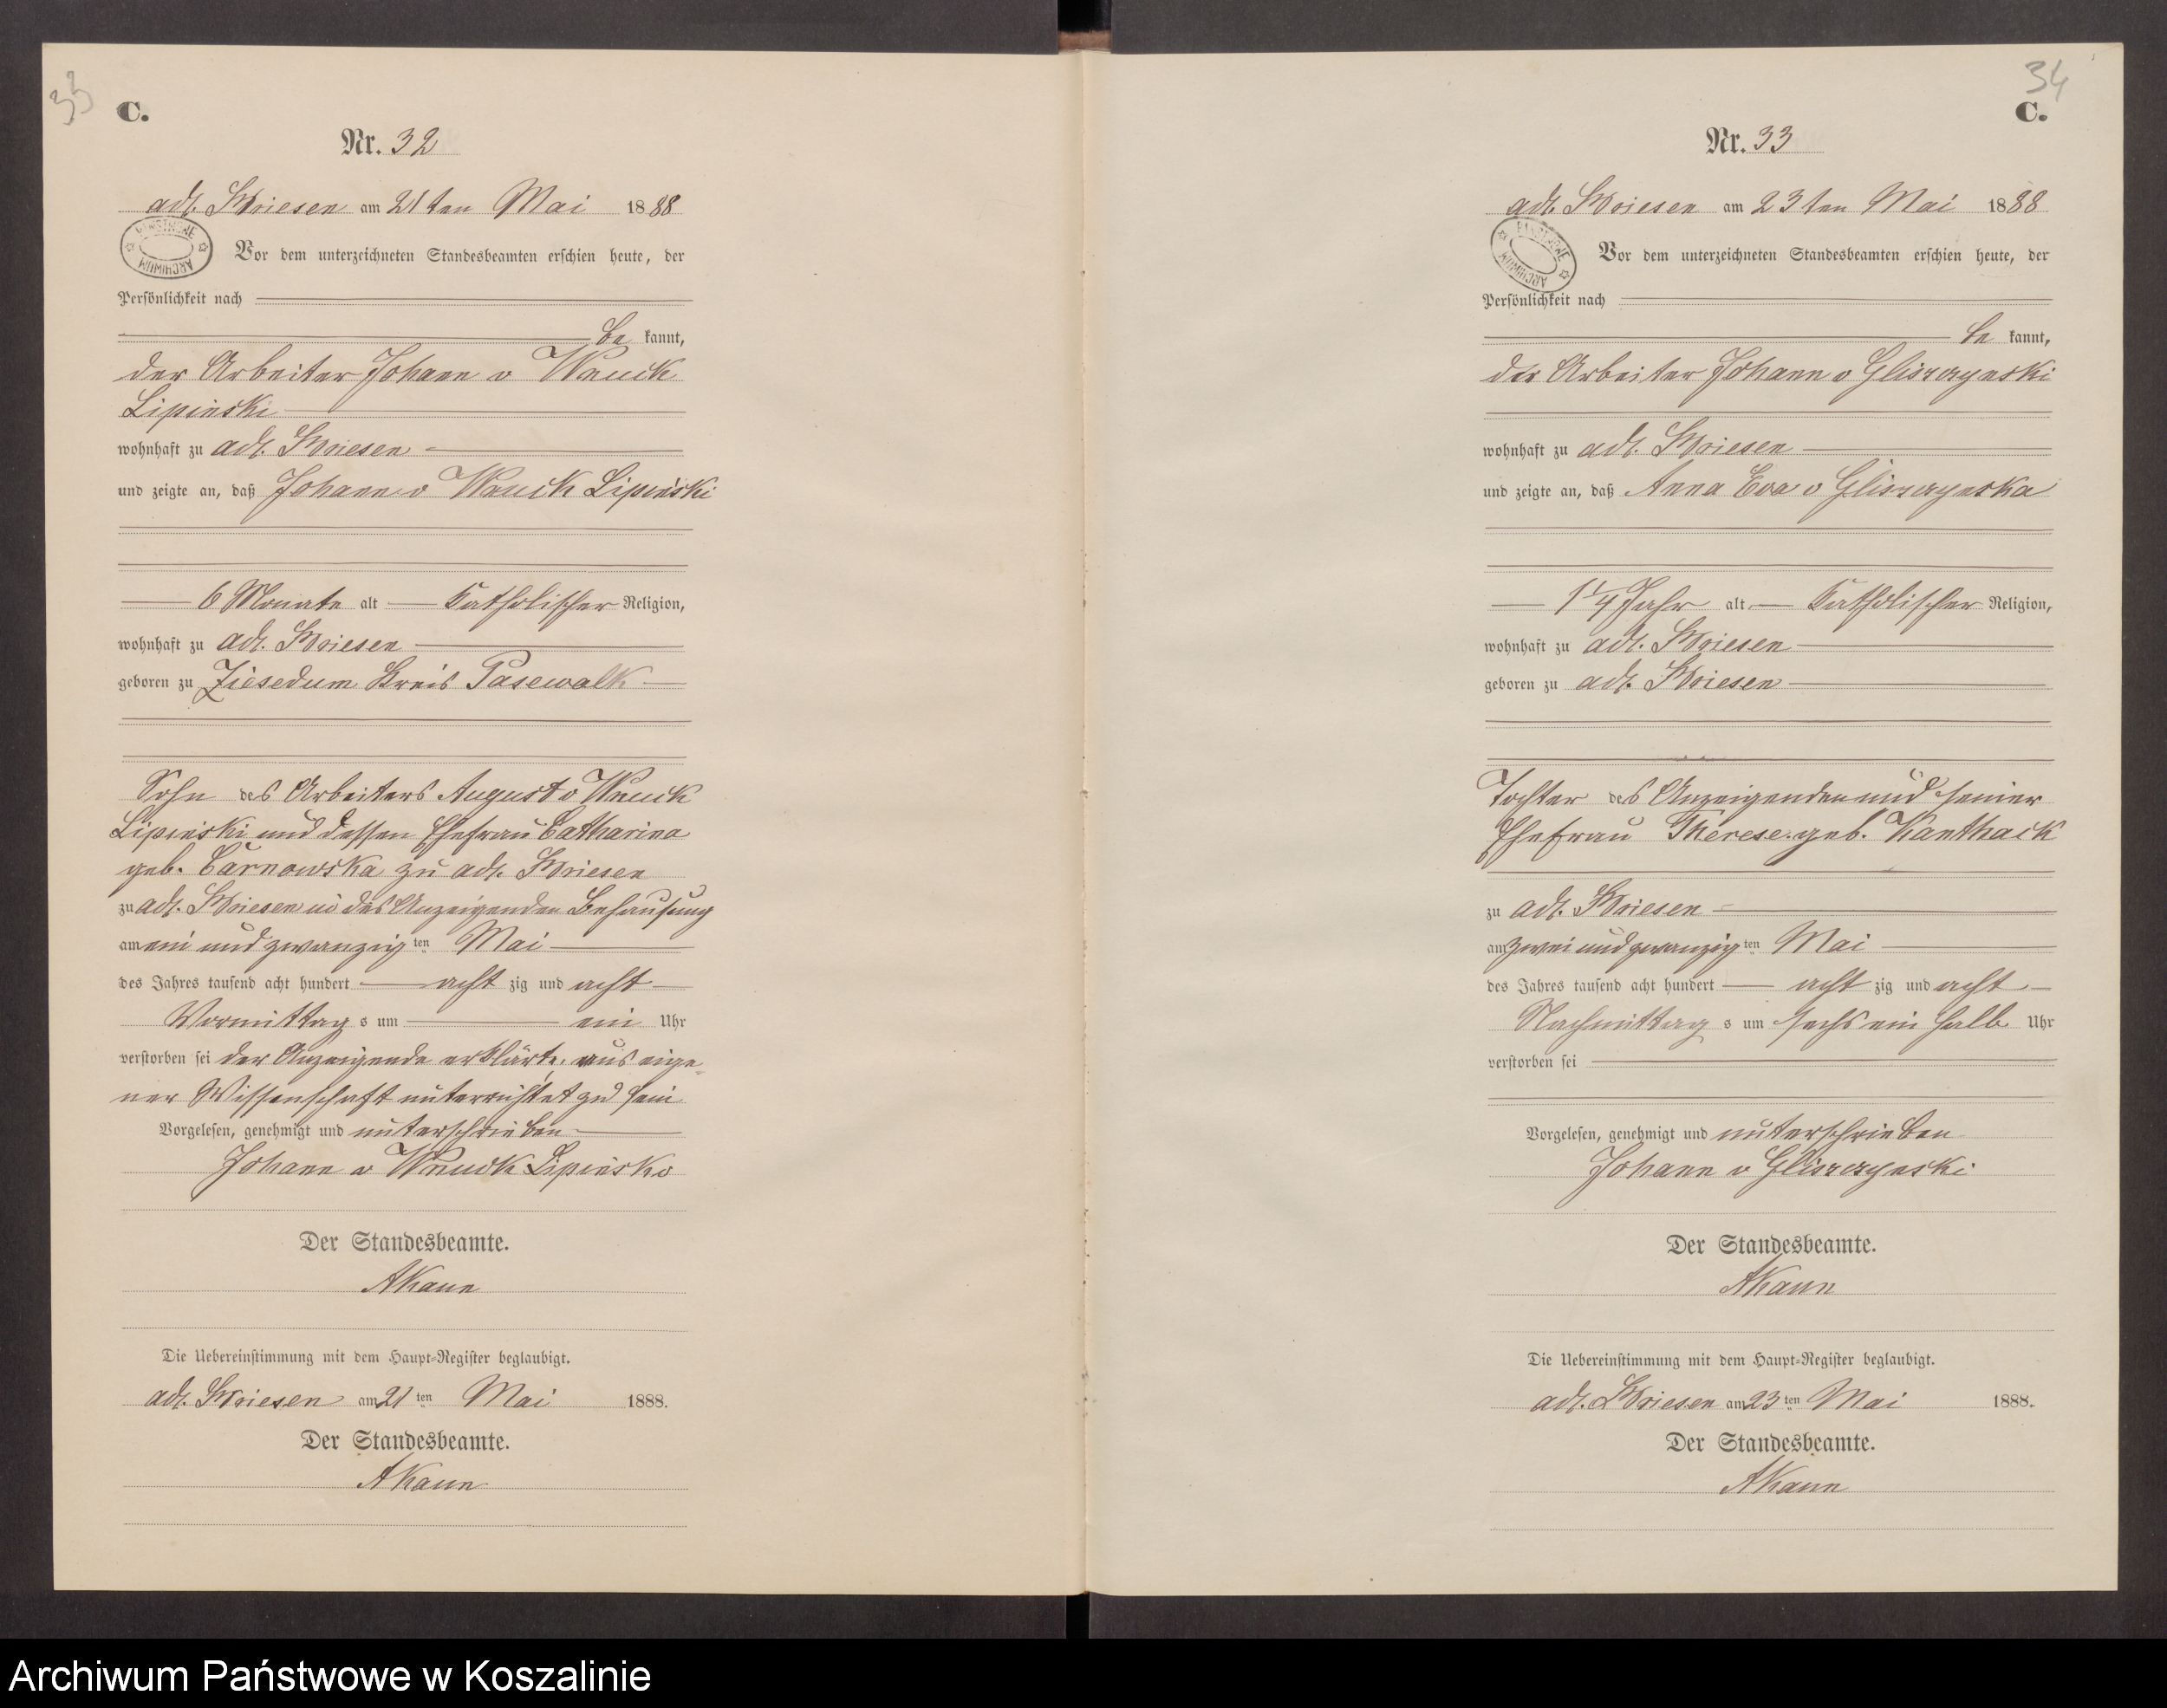 33
C.
Nr. 32
adl. Briesen am 21ten Mai 1888
ARCHIWUM PAŃSTWOWE
Vor dem unterzeichneten Standesbeamten erschien heute, der
Persönlichkeit nach
be kannt,
der Arbeiter Johann v Wnuck
Lipinski
wohnhaft zu adl. Briesen
und zeigte an, daß Johann v Wnuck Lipiński
6 Monate alt Katholischer Religion,
wohnhaft zu adl. Briesen
geboren zu Ziesedum Kreis Pasewalk
Sohn des Arbeiters August v Wnuck
Lipinski und dessen Ehefrau Catharina
geb. Carnowska zu adl. Briesen
zu adl. Briesen in des Anzeigenden Behausung
am ein und zwanzig ten Mai
des Jahres tausend acht hundert acht zig und acht
Vormittag s um ein Uhr
verstorben sei der Anzeigende erklärte, aus eige-
ner Wissenschaft unterrichtet zu sein
Vorgelesen, genehmigt und unterschrieben
Johann v Wnuck Lipinski
Der Standesbeamte.
AKann
Die Uebereinstimmung mit dem Haupt-Register beglaubigt.
adl. Briesen am 21 ten Mai 1888.
Der Standesbeamte.
AKann
34
C.
Nr. 33
adl. Briesen am 23ten Mai 1888
ARCHIWUM PAŃSTWOWE
Vor dem unterzeichneten Standesbeamten erschien heute, der
Persönlichkeit nach
be kannt,
der Arbeiter Johann v Gliszczynski
wohnhaft zu adl. Briesen
und zeigte an, daß Anna Eva v Gliszczynska
1 1/4 Jahr alt Katholischer Religion,
wohnhaft zu adl. Briesen
geboren zu adl. Briesen
Tochter des Anzeigenden und seiner
Ehefrau Therese geb. Kanthack
zu adl. Briesen
am zwei und zwanzig ten Mai
des Jahres tausend acht hundert acht zig und acht
Nachmittag s um sechs ein halb Uhr
verstorben sei
Vorgelesen, genehmigt und unterschrieben
Johann v Gliszczynski
Der Standesbeamte.
AKann
Die Uebereinstimmung mit dem Haupt-Register beglaubigt.
adl. Briesen am 23 ten Mai 1888.
Der Standesbeamte.
AKann
Archiwum Państwowe w Koszalinie